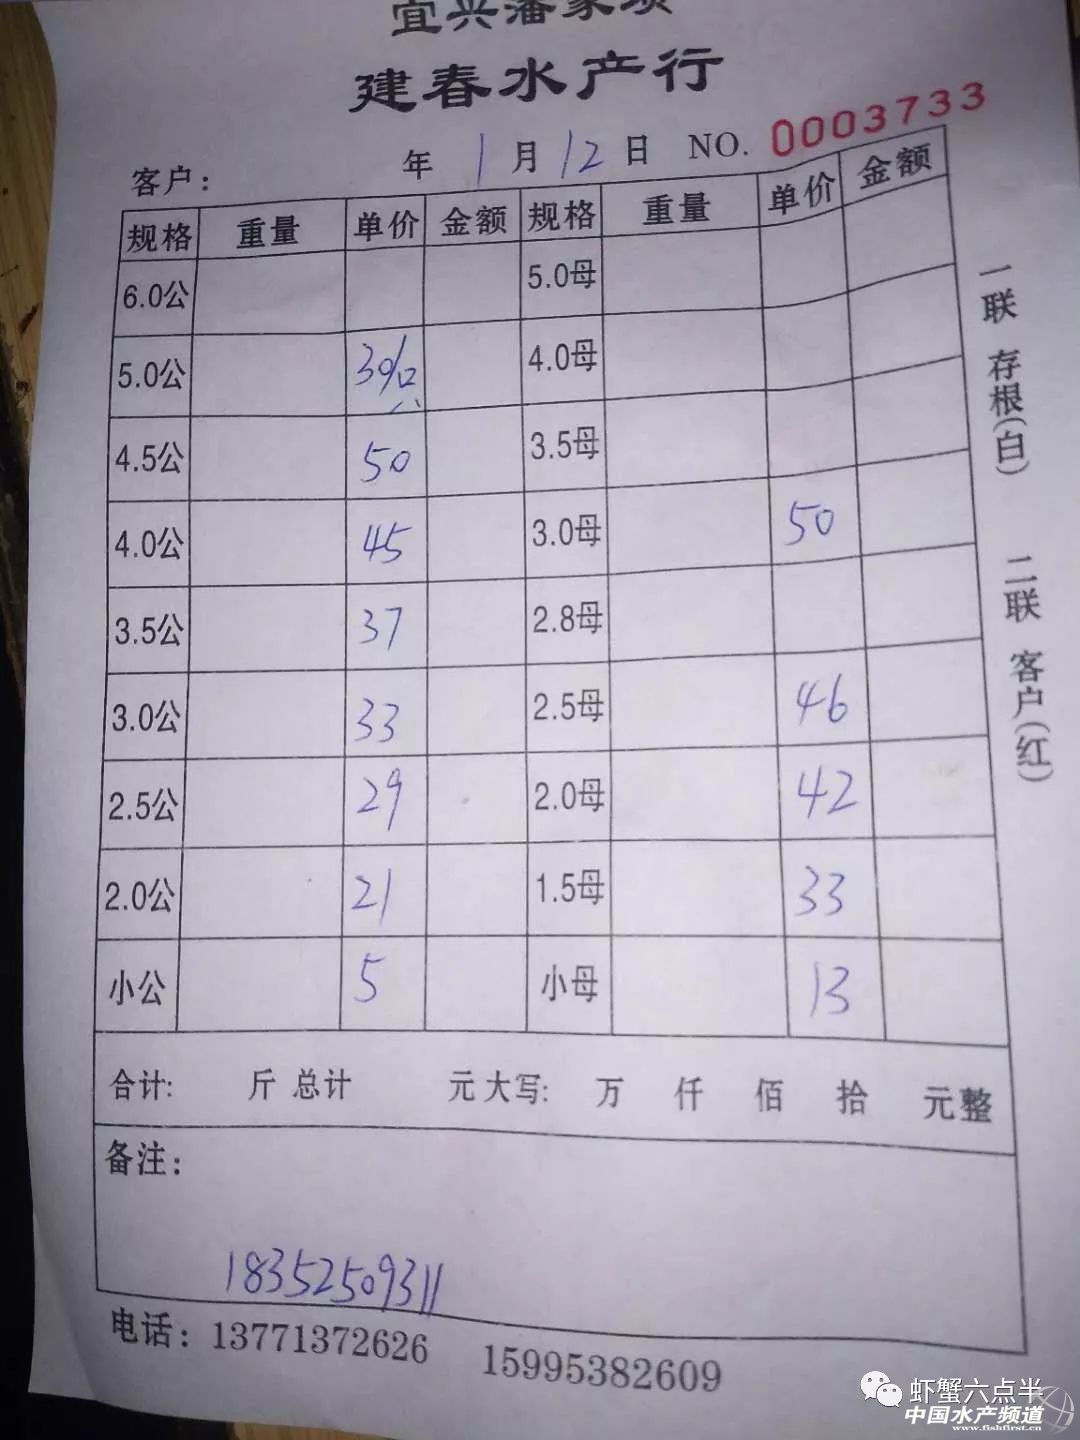 宜兴潘家坝
建春水产行
客户： 年 1 月 12 日 NO. 0003733
规格 重量 单价 金额 规格 重量 单价 金额
6.0公 5.0母
5.0公 30/只 4.0母
4.5公 50 3.5母
4.0公 45 3.0母 50
3.5公 37 2.8母
3.0公 33 2.5母 46
2.5公 29 2.0母 42
2.0公 21 1.5母 33
小公 5 小母 13
合计: 斤 总计 元 大写: 万 仟 佰 拾 元整
备注:
18352509311
电话: 13771372626 15995382609
一联 存根(白) 二联 客户(红)
虾蟹六点半
中国水产频道
www.fishfirst.cn